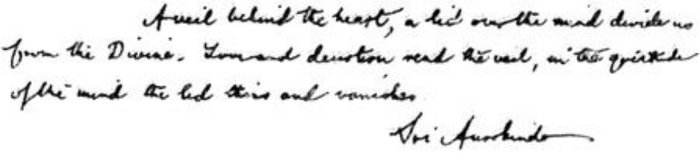 A veil behind the heart, a lid over the mind divide us
from the Divine. Love and devotion rend the veil, in the quietude
of the mind the lid thins and vanishes
Sri Aurobindo